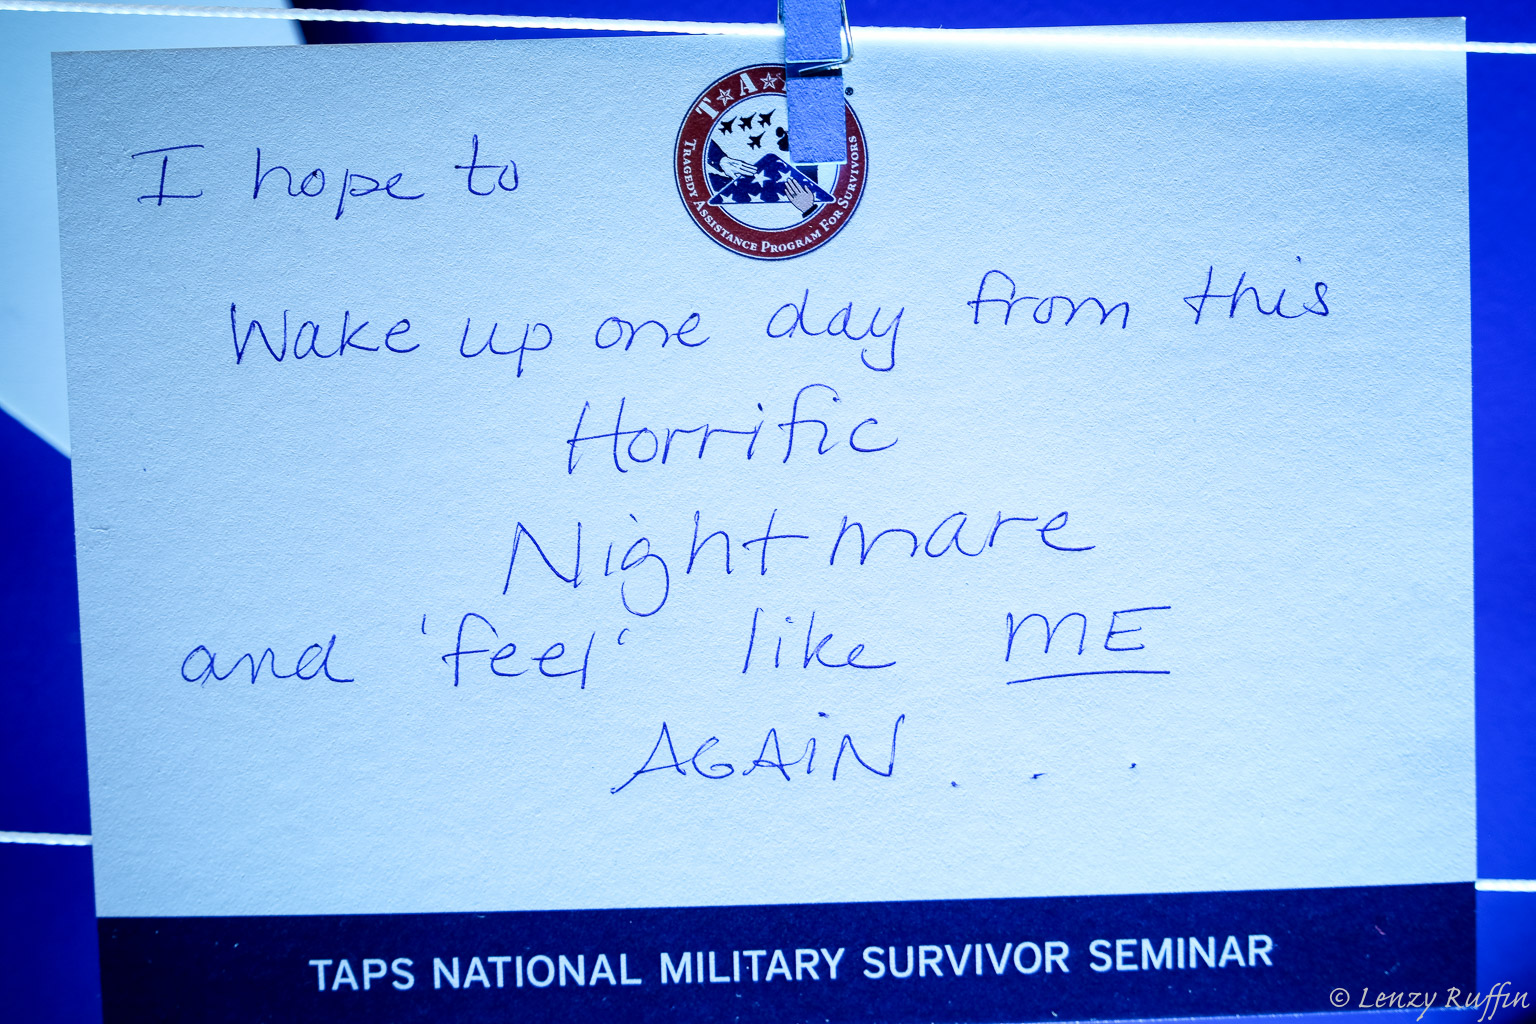 T★A★
TRAGEDY ASSISTANCE PROGRAM FOR SURVIVORS
®
I hope to
Wake up one day from this
Horrific
Nightmare
and 'feel' like ME
AGAiN . . .
TAPS NATIONAL MILITARY SURVIVOR SEMINAR
© Lenzy Ruffin